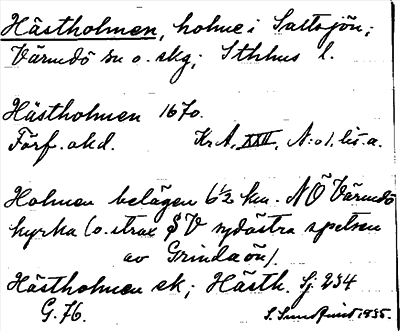 Hästholmen, holme i Saltsjön;
Värmdö sn o. skg; Sthlms l.
Hästholmen 1670.
Förf. akd. Kr. A, XXII, N:o 1, lis. a.
Holmen belägen 6½ km. NÖ Värmdö
kyrka (o. strax SV sydöstra spetsen
av Grindaön).
Hästholmen ek; Hästh. Sj. 234
G. 76. S. Sundqvist 1935.